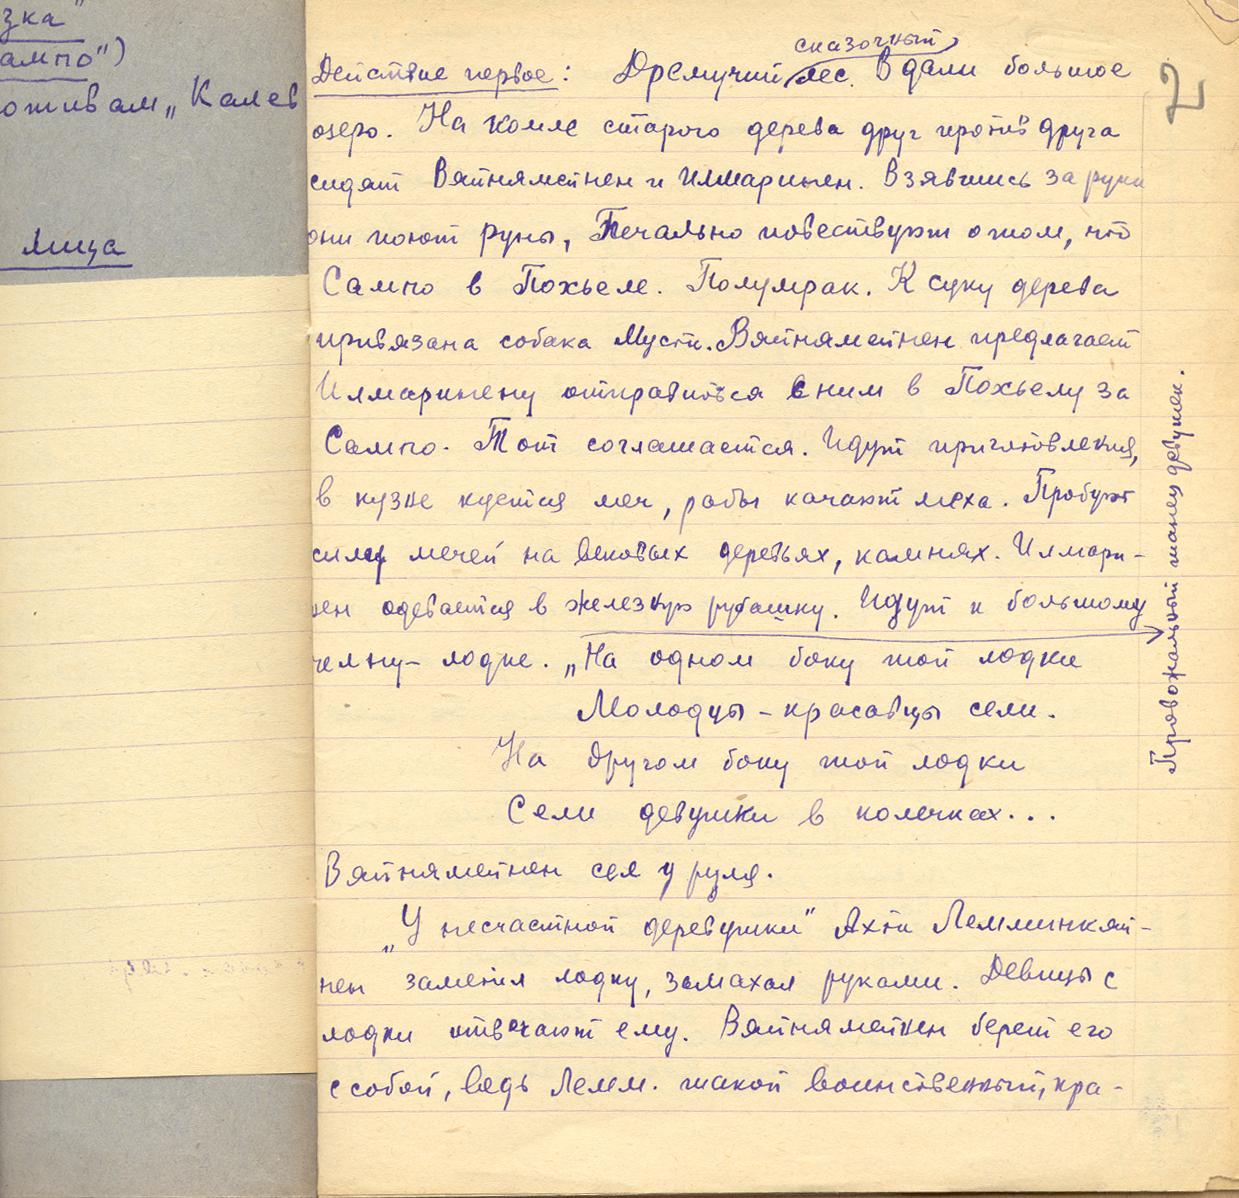 зка"
ампо")
отивам „Калев
лица
2
сказочный
Действие первое: Дремучий лес. Вдали большое
озеро. На комле старого дерева друг против друга
сидят Вяйнямейнен и Илмаринен. Взявшись за руки
они поют руны, Печально повествуют о том, что
Сампо в Похьеле. Полумрак. К суку дерева
привязана собака Мусти. Вяйнямейнен предлагает
Илмаринену отправиться с ним в Похьелу за
Сампо. Тот соглашается. Идут приготовления,
в кузне куется меч, рабы качают меха. Пробуют
силу мечей на вековых деревьях, камнях. Илмари-
нен одевается в железную рубашку. Идут к большому
челну- лодке. „На одном боку той лодки
Молодцы - красавцы сели.
На другом боку той лодки
Сели девушки в колечках...
Вяйнямейнен сел у руля.
„У несчастной деревушки" Ахти Лемминкяй-
нен заметил лодку, замахал руками. Девицы с
лодки отвечают ему. Вяйнямейнен берет его
с собой, ведь Лемм. такой воинственный, кра-
Провожальный танец девушек.